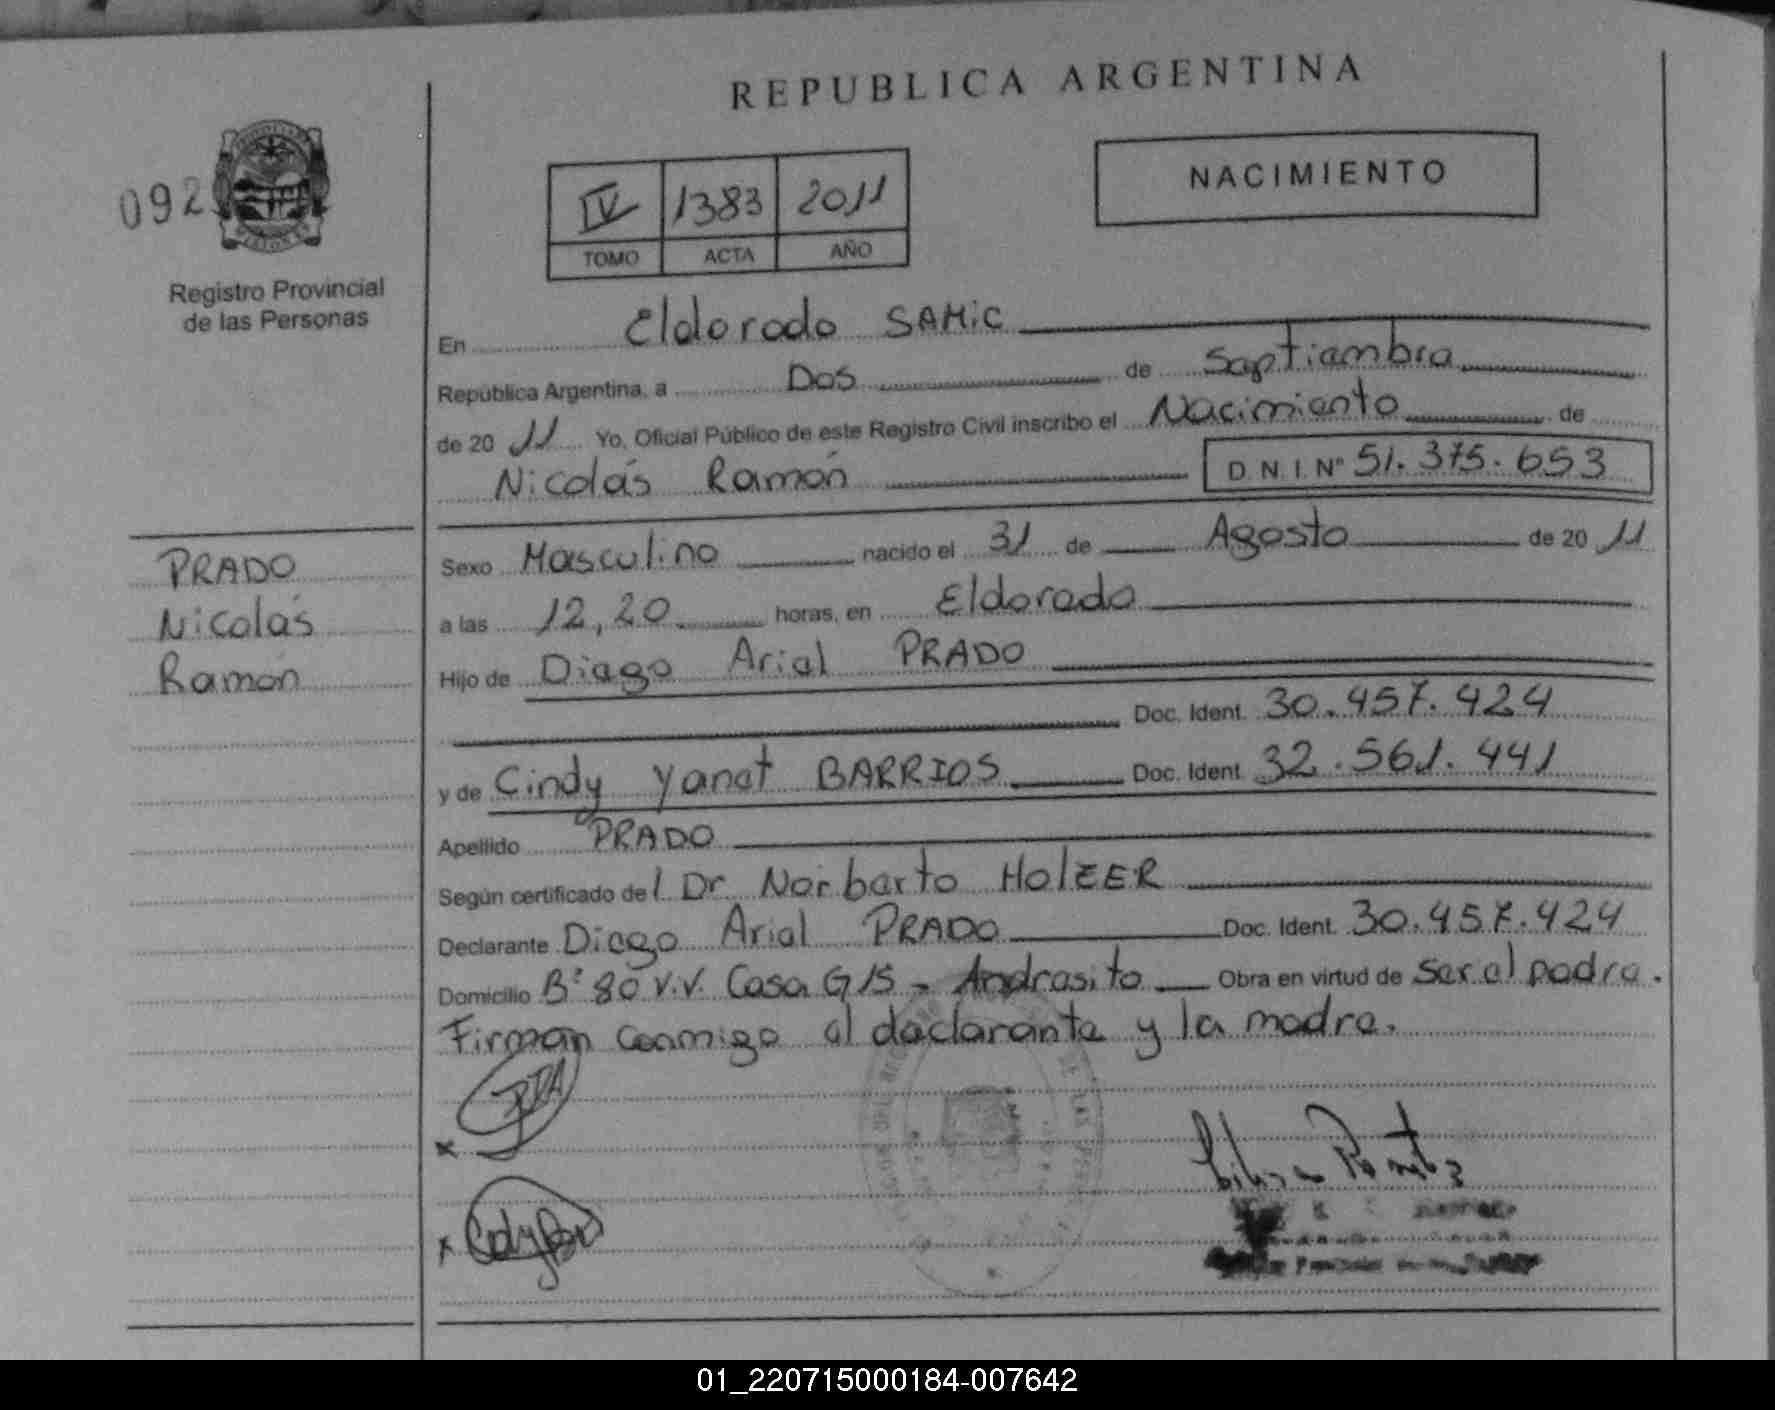 REPUBLICA ARGENTINA
NACIMIENTO
092
IV 1383 2011
TOMO ACTA AÑO
MISIONES
Registro Provincial
de las Personas
En Eldorado SAMiC
República Argentina, a Dos de Septiembre
de 20 11 Yo, Oficial Público de este Registro Civil inscribo el Nacimiento de
Nicolás Ramón D. N. I. Nº 51.375.653
PRADO
Nicolás
Ramón
Sexo Masculino nacido el 31 de Agosto de 20 11
a las 12,20 horas, en Eldorado
Hijo de Diego Ariel PRADO
Doc. Ident. 30.457.424
y de Cindy Yanet BARRIOS Doc. Ident. 32.561.441
Apellido PRADO
Según certificado del Dr Norberto HolZER
Declarante Diego Ariel PRADO Doc. Ident. 30.457.424
Domicilio Bº 80 V.V. Casa G/S - Andresito Obra en virtud de ser el padre.
Firman conmigo el declarante y la madre.
01_220715000184-007642